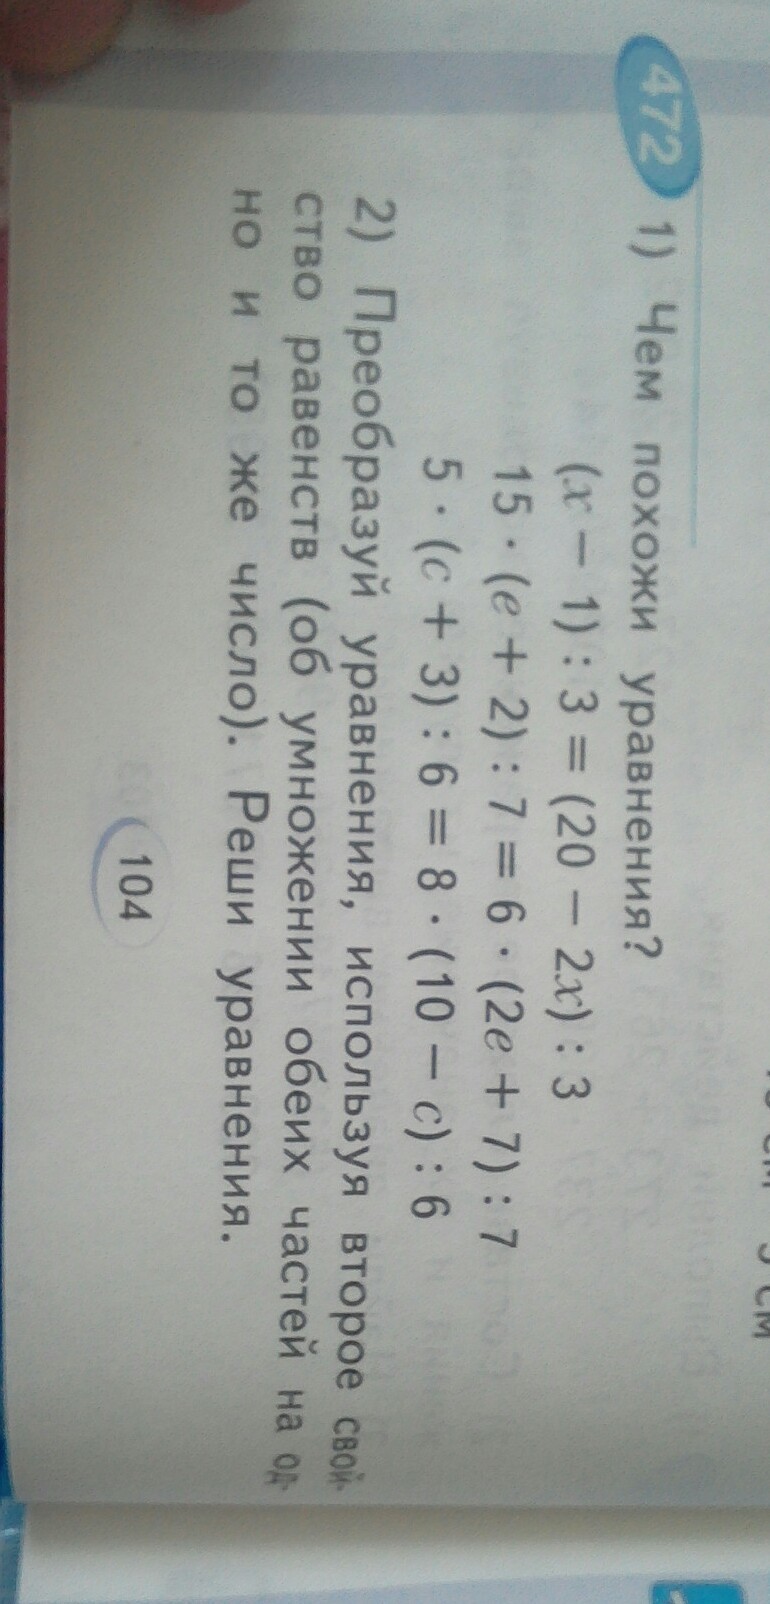 472 1) Чем похожи уравнения?
(x − 1) : 3 = (20 − 2x) : 3
15 · (e + 2) : 7 = 6 · (2e + 7) : 7
5 · (c + 3) : 6 = 8 · (10 − c) : 6
2) Преобразуй уравнения, используя второе свой-
ство равенств (об умножении обеих частей на од-
но и то же число). Реши уравнения.
104